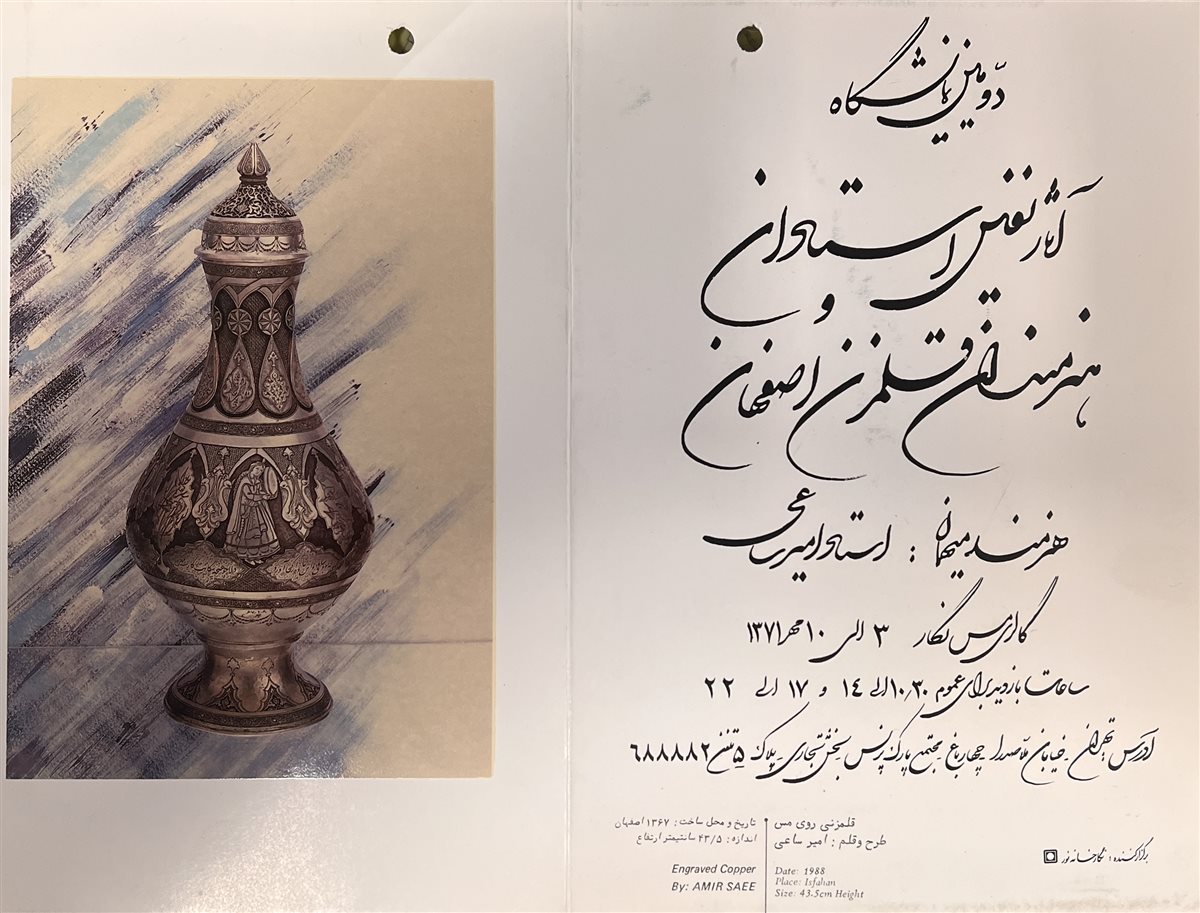 دوّمین نمایشگاه
آثار نفیس استادان
و
هنرمندان قلمزن اصفهان
هنرمند میهمان : استاد امیر ساعی
گالری مس نگار ۳ الی ۱۰ مهر ۱۳۷۱
ساعات بازدید برای عموم ۱۰/۳۰ الی ۱۴ و ۱۷ الی ۲۲
آدرس: تهران. خیابان ملاصدرا. چهارباغ. مجتمع پارک پرنس. بخش تجاری. پلاک ۵ تلفن ۶۸۸۸۸۲
قلمزنی روی مس
طرح و قلم : امیر ساعی
تاریخ و محل ساخت : ۱۳۶۷ اصفهان
اندازه : ۴۳/۵ سانتیمتر ارتفاع
Engraved Copper
By: AMIR SAEE
Date: 1988
Place: Isfahan
Size: 43.5cm Height
برگزارکننده : نگارخانه نور